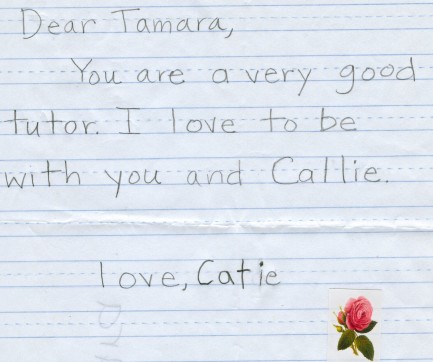 Dear Tamara,
You are a very good
tutor. I love to be
with you and Callie.
love, Catie